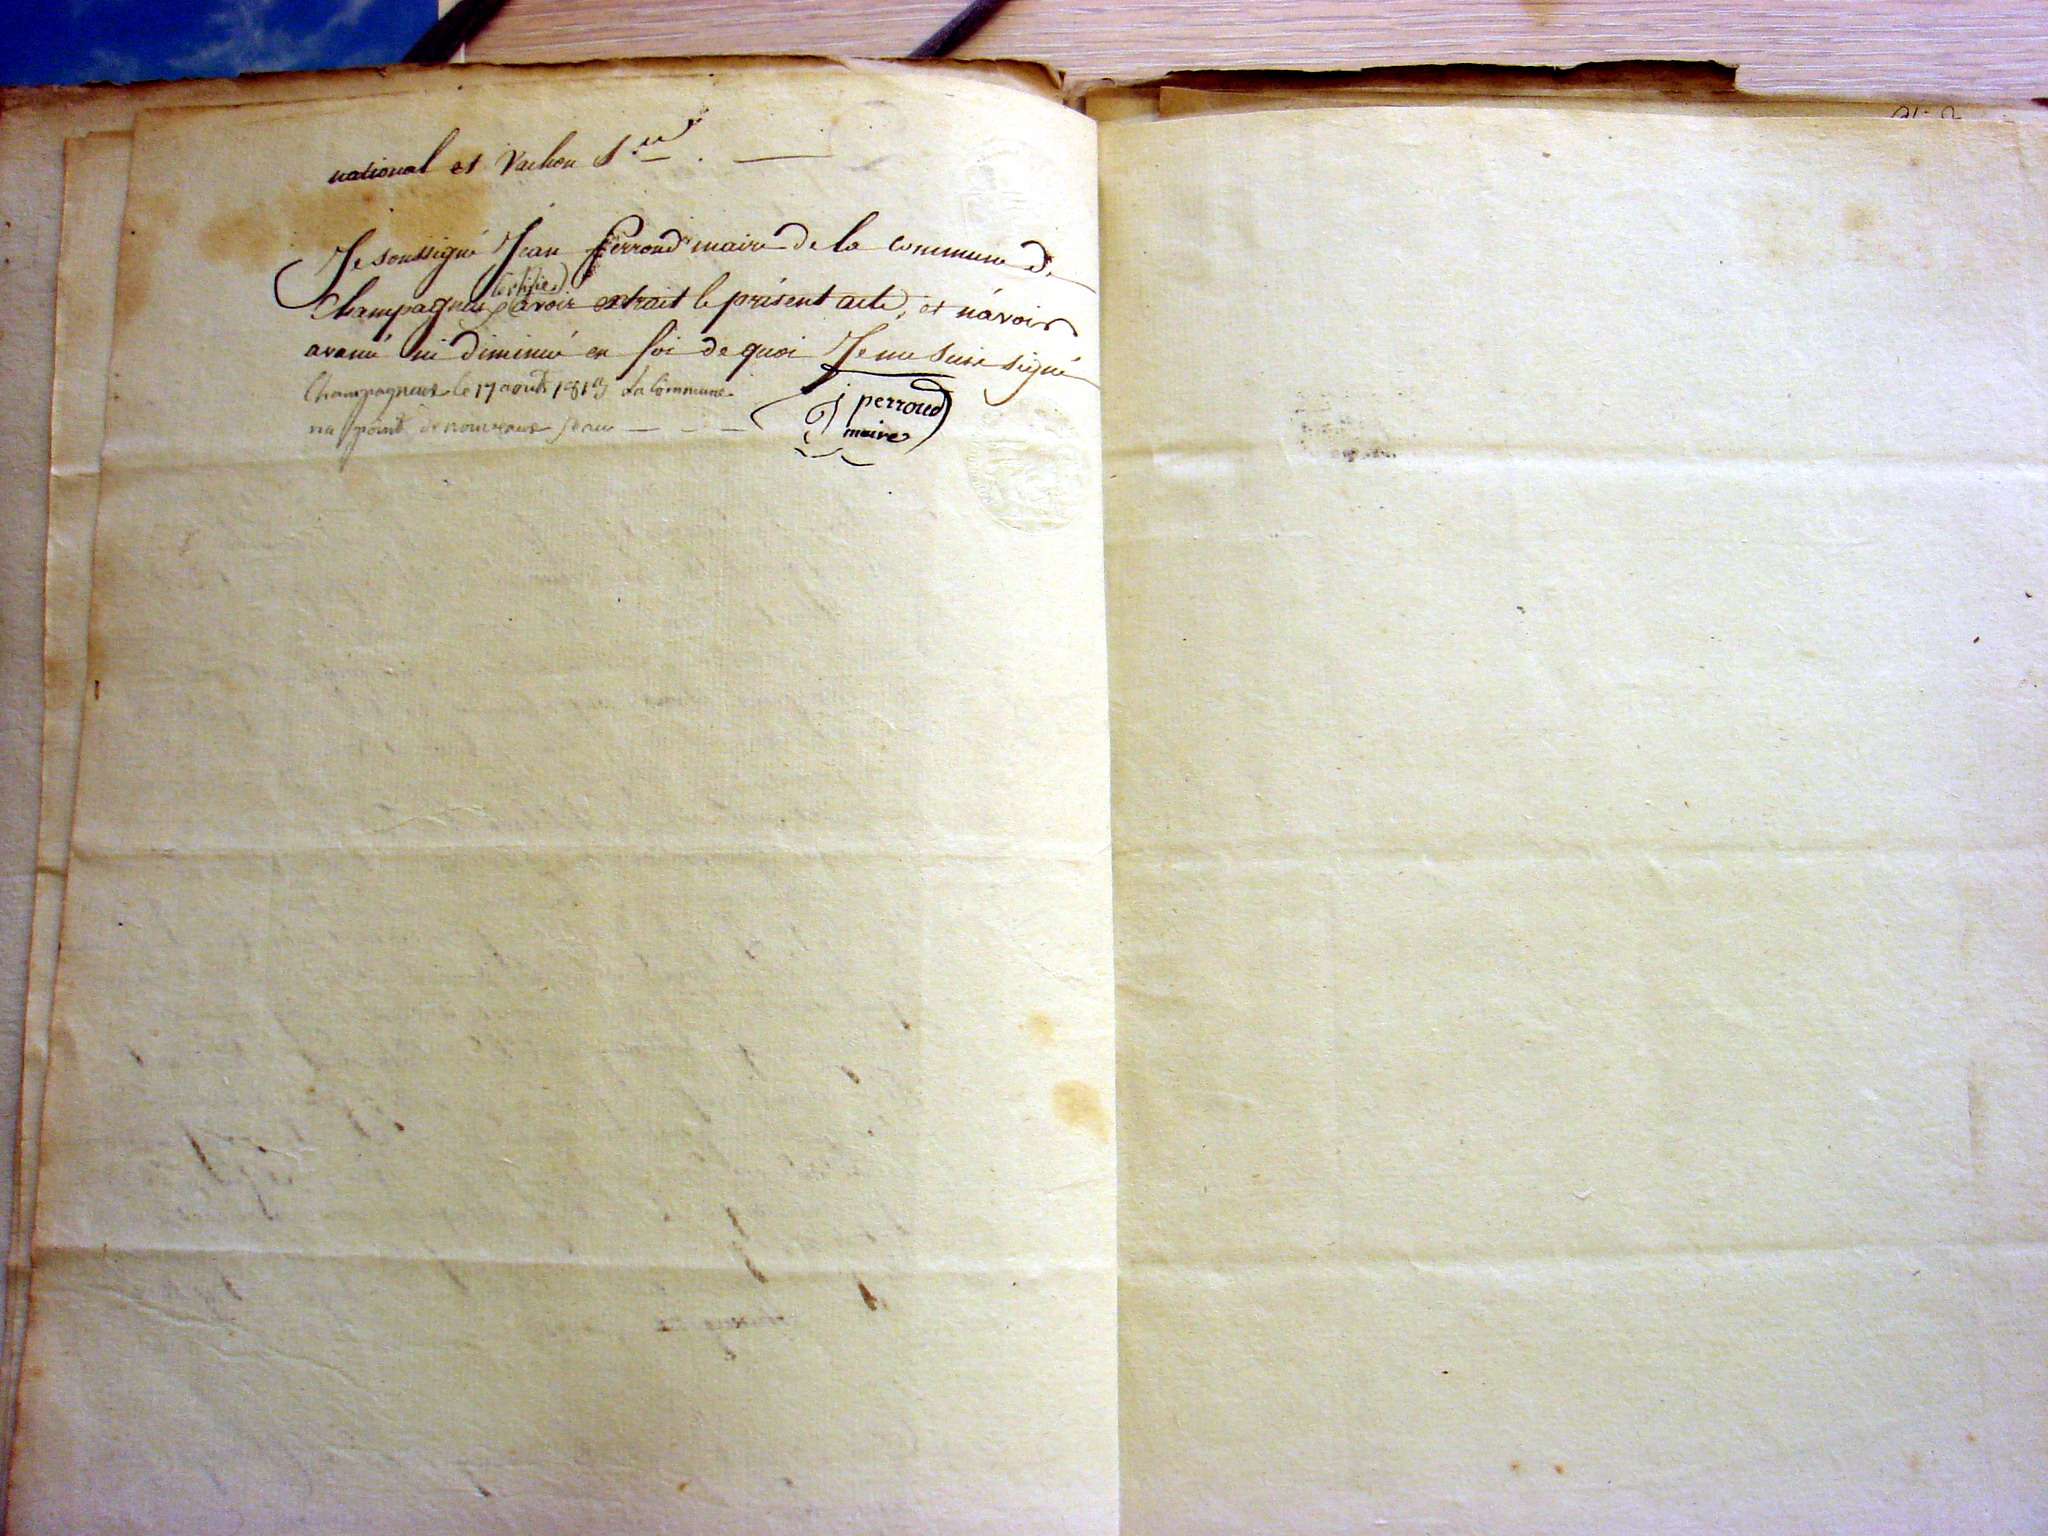 national et Vachon S.re
Je soussigné Jean perroud maire de la commune de
certifie
Champagneux avoir extrait le présent acte, et n'avoir
avanné ni diminué en foi de quoi Je me suis signé
Champagneux le 17 aout 1813 La Commune
na point de nouveaux
J perroud
maire